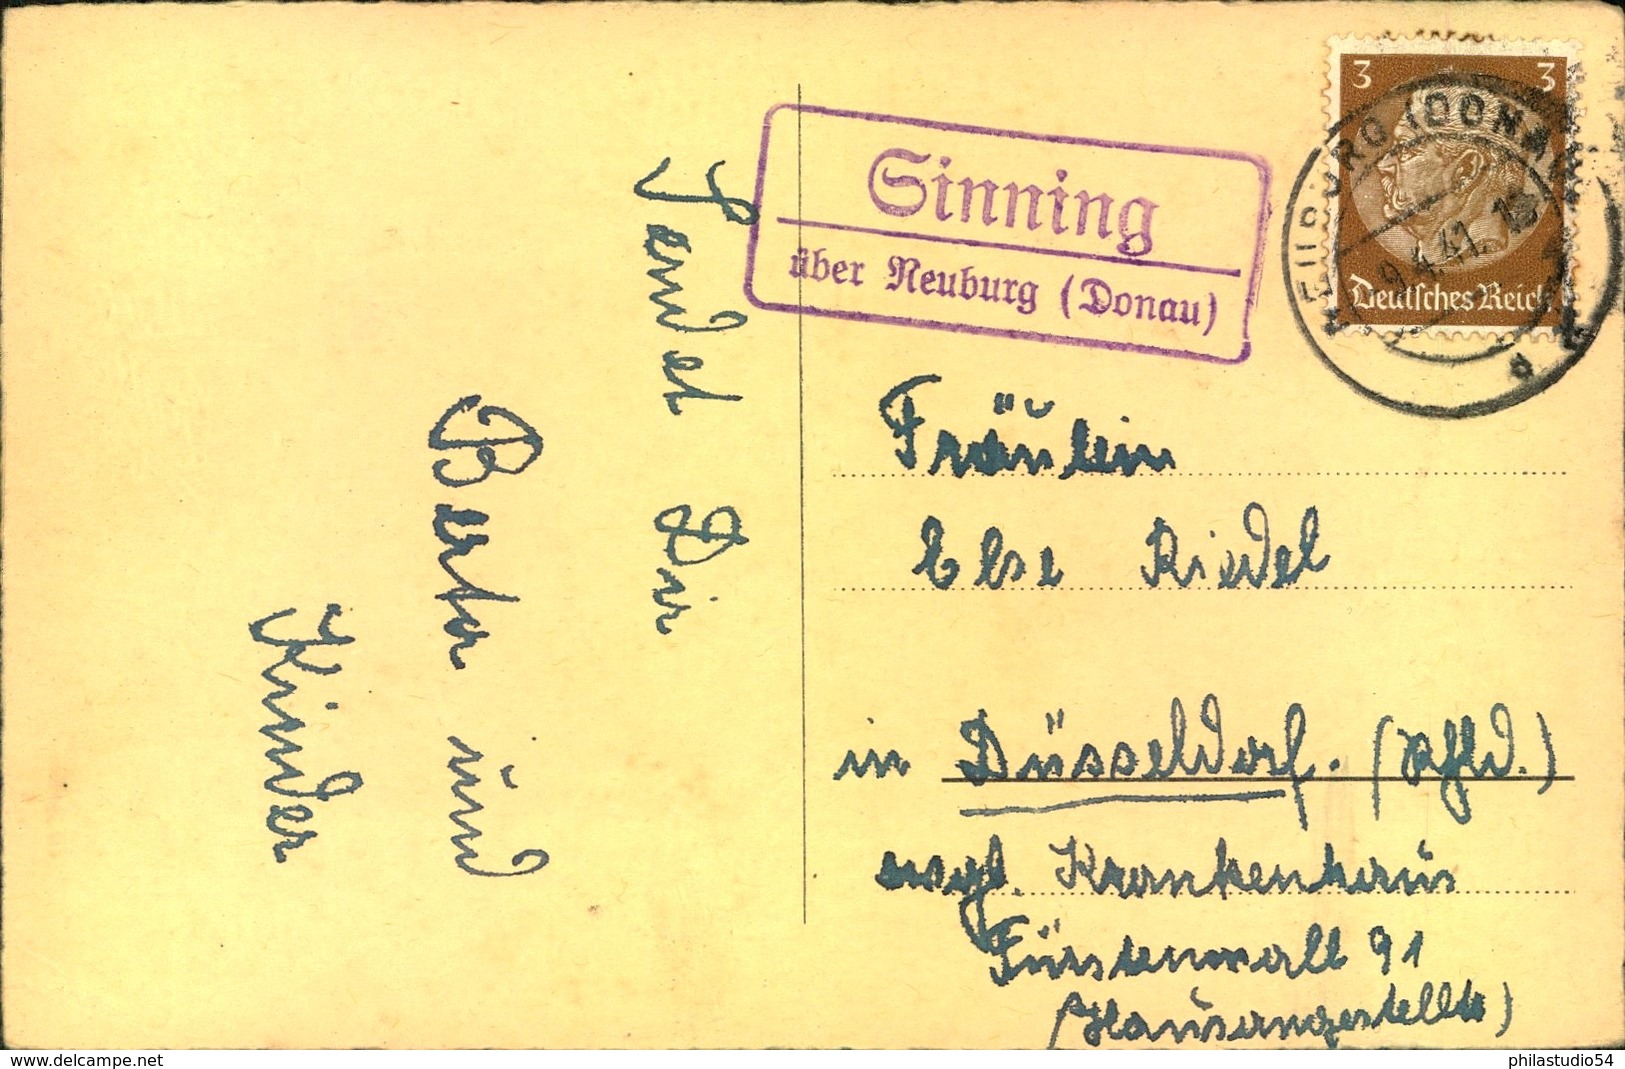 Sendet Dir
Berta und
Kinder
Sinning
über Neuburg (Donau)
3 3
Deutsches Reich
NEUBURG (DONAU)
9.4.41. 18
Fräulein
Else Riedel
in Düsseldorf. (Rhld.)
evgl. Krankenhaus
Fürstenwall 91
(Hausangestellte)
www.delcampe.net
philastudio54